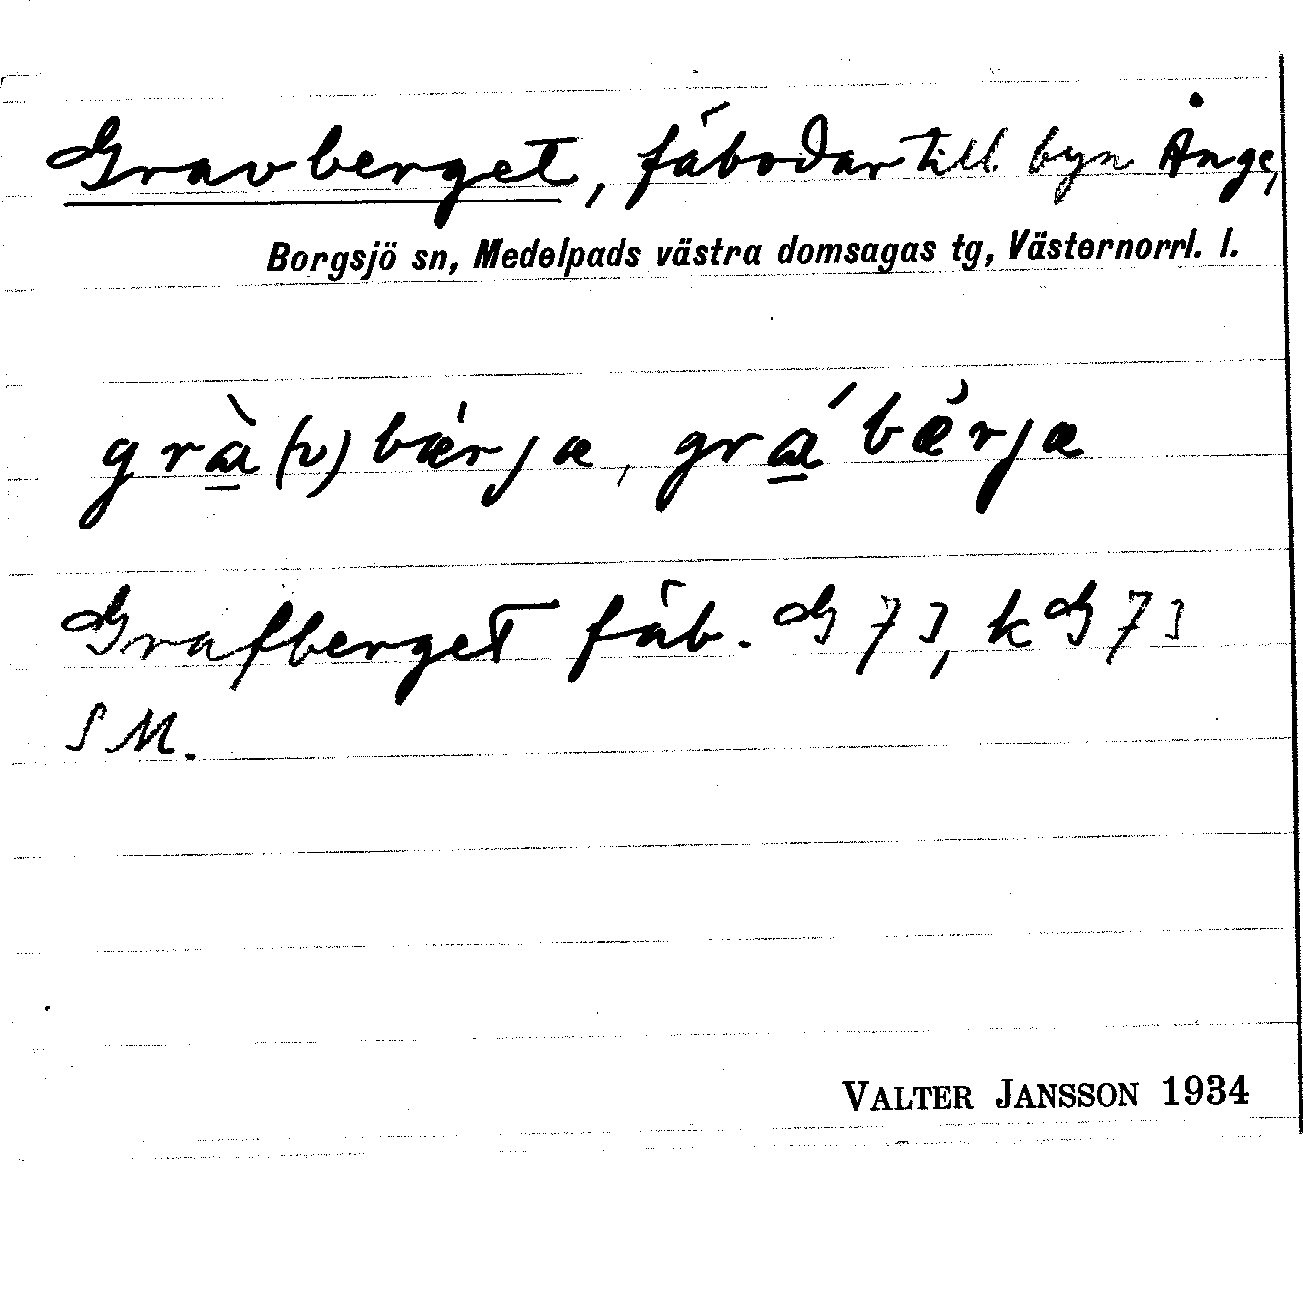 Gravberget, fäbodar till byn Ånge,
Borgsjö sn, Medelpads västra domsagas tg, Västernorrl. l.
grà(v)bǽrjæ, grábæ̀rjæ
Grafberget fäb. G 73, kG 73
SM.
VALTER JANSSON 1934